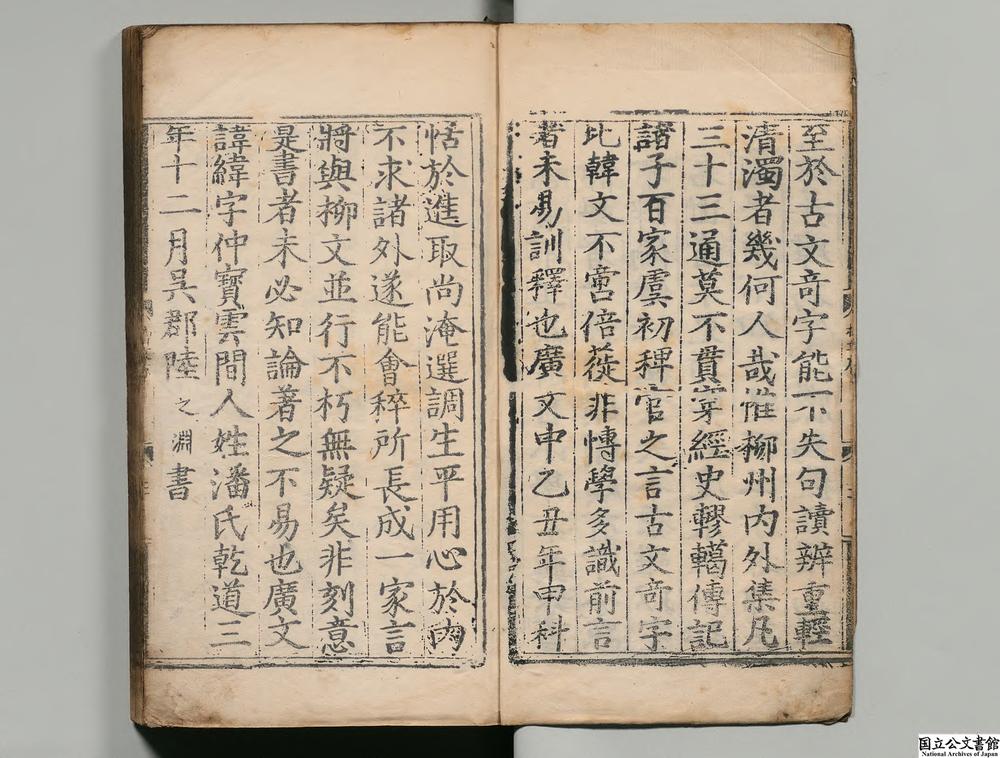 至於古文奇字能不失句讀辨重輕
清濁者幾何人哉惟柳州內外集凡
三十三通莫不貫穿經史轇轕傳記
諸子百家虞初稗官之言古文奇字
比韓文不啻倍蓰非博學多識前言
者未易訓釋也廣文中乙丑年甲科
恬於進取尚淹選調生平用心於內
不求諸外遂能會稡所長成一家言
將與柳文並行不朽無疑矣非刻意
是書者未必知論著之不易也廣文
諱緯字仲寶雲間人姓潘氏乾道三
年十二月吳郡陸之淵書
国立公文書館
National Archives of Japan